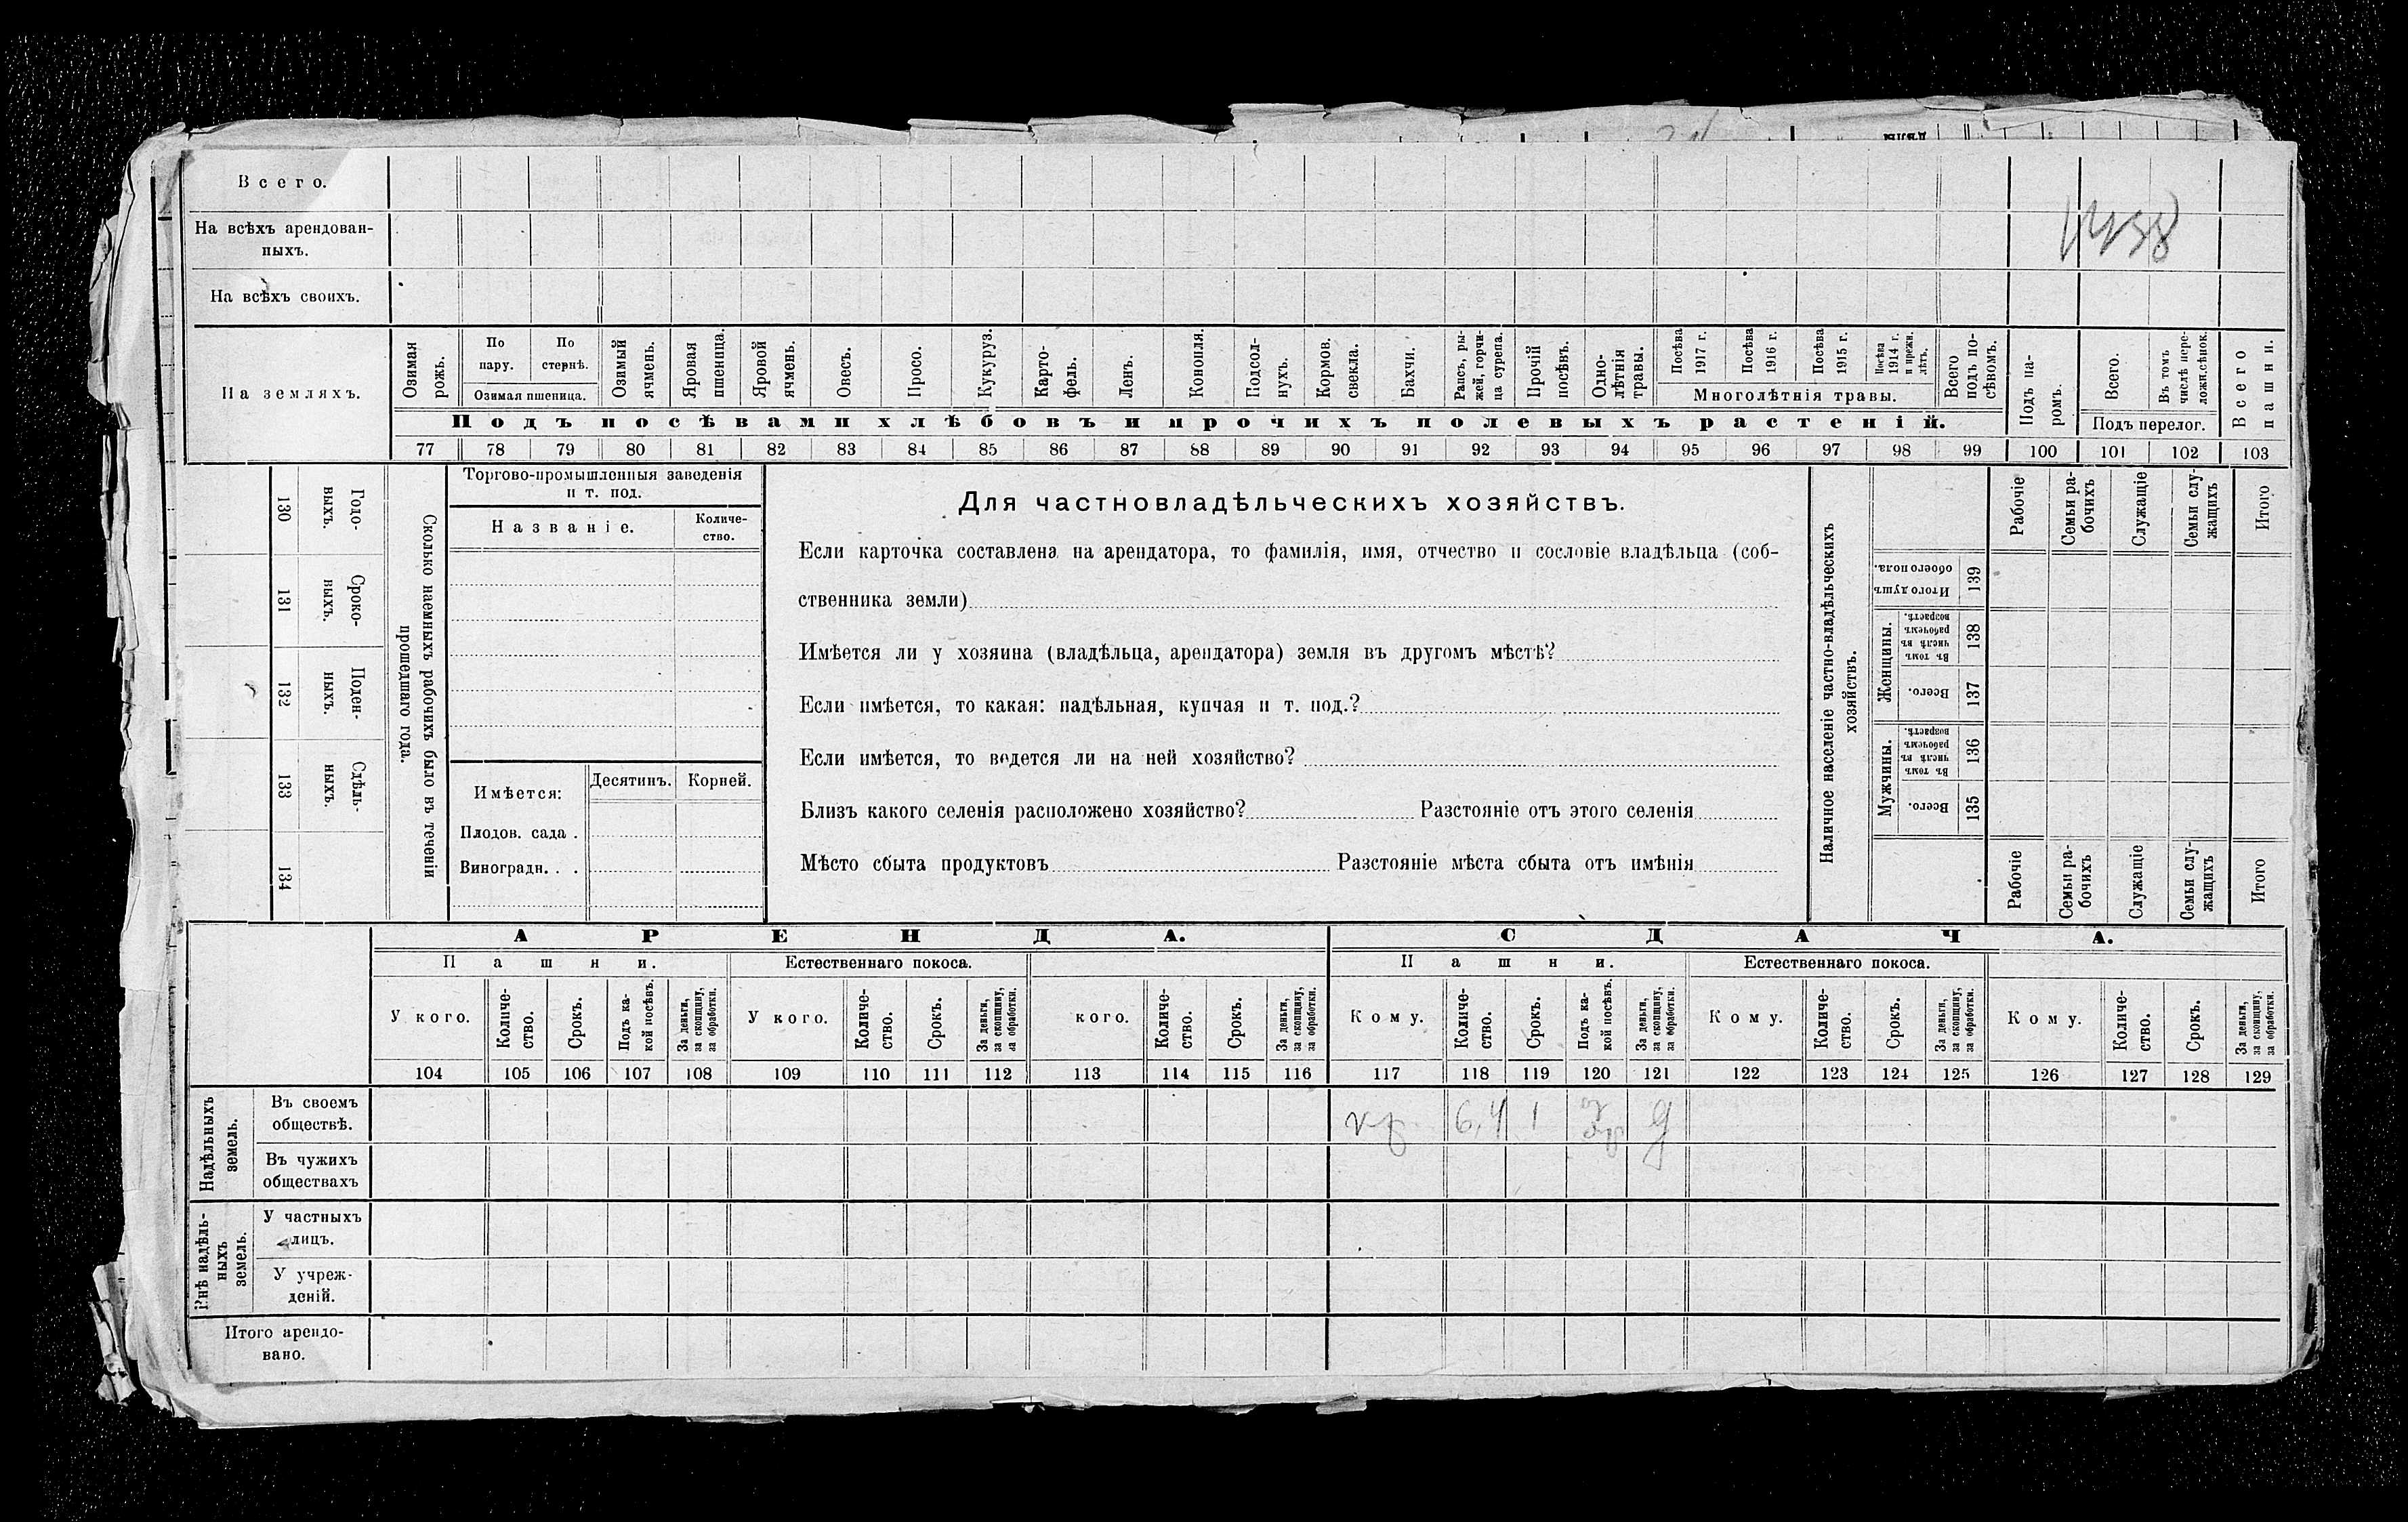 Всего.
На всѣхъ арендован-
ныхъ.
На всѣхъ своихъ.
На земляхъ.
Озимая рожь.
По пару.
По стернѣ.
Озимая пшеница.
Озимый ячмень.
Яровая пшеница.
Яровой ячмень.
Овесъ.
Просо.
Кукуруз.
Карто-
фель.
Ленъ.
Конопля.
Подсол-
нухъ.
Кормов.
свекла.
Бахчи.
Рапсъ, ры-
жей, горчи-
ца сурепа.
Прочій
посѣвъ.
Одно-
лѣтнія
травы.
Посѣва
1917 г.
Посѣва
1916 г.
Посѣва
1915 г.
Посѣва
1914 г.
и прежн.
лѣтъ.
Многолѣтнія травы.
Всего
подъ по-
сѣвомъ.
Подъ па-
ромъ.
Всего.
Въ томъ
числѣ пере-
ложн.сѣнок.
Подъ перелог.
Всего
пашни.
Подъ посѣвами хлѣбовъ и прочихъ полевыхъ растеній.
77 78 79 80 81 82 83 84 85 86 87 88 89 90 91 92 93 94 95 96 97 98 99 100 101 102 103
130
Годо-
выхъ.
131
Сроко-
выхъ.
132
Поден-
ныхъ.
133
Сдѣль-
ныхъ.
134
Сколько наемныхъ рабочихъ было въ теченіи
прошедшаго года.
Торгово-промышленныя заведенія
и т. под.
Названіе.
Количе-
ство.
Имѣется:
Десятинъ.
Корней.
Плодов. сада .
Виноградн. . .
Для частновладѣльческихъ хозяйствъ.
Если карточка составлена на арендатора, то фамилія, имя, отчество и сословіе владѣльца (соб-
ственника земли)
Имѣется ли у хозяина (владѣльца, арендатора) земля въ другомъ мѣстѣ?
Если имѣется, то какая: надѣльная, купчая и т. под.?
Если имѣется, то ведется ли на ней хозяйство?
Близъ какого селенія расположено хозяйство? Разстояніе отъ этого селенія
Мѣсто сбыта продуктовъ Разстояніе мѣста сбыта отъ имѣнія
Наличное населеніе частно-владѣльческихъ
хозяйствъ.
Рабочіе
Семьи ра-
бочихъ
Служащіе
Семьи слу-
жащихъ
Итого
Итого душъ
обоего пола.
139
Женщины.
Въ томъ
числѣ въ
рабочемъ
возрастѣ.
138
Всего.
137
Мужчины.
Въ томъ
числѣ въ
рабочемъ
возрастѣ.
136
Всего.
135
Рабочіе
Семьи ра-
бочихъ
Служащіе
Семьи слу-
жащихъ
Итого
АРЕНДА.
СДАЧА.
Пашни.
Естественнаго покоса.
Пашни.
Естественнаго покоса.
У кого.
Количе-
ство.
Срокъ.
Подъ ка-
кой посѣвъ.
За деньги,
за скопщину,
за обработки.
У кого.
Количе-
ство.
Срокъ.
За деньги,
за скопщину,
за обработки.
кого.
Количе-
ство.
Срокъ.
За деньги,
за скопщину,
за обработки.
Кому.
Количе-
ство.
Срокъ.
Подъ ка-
кой посѣвъ.
За деньги,
за скопщину,
за обработки.
Кому.
Количе-
ство.
Срокъ.
За деньги,
за скопщину,
за обработки.
Кому.
Количе-
ство.
Срокъ.
За деньги,
за скопщину,
за обработки.
104 105 106 107 108 109 110 111 112 113 114 115 116 117 118 119 120 121 122 123 124 125 126 127 128 129
Надѣльныхъ
земель.
Въ своемъ
обществѣ.
кр. 6,4 1 д
Въ чужихъ
обществахъ
Внѣ надѣль-
ныхъ
земель.
У частныхъ
лицъ.
У учреж-
деній.
Итого арендо-
вано.